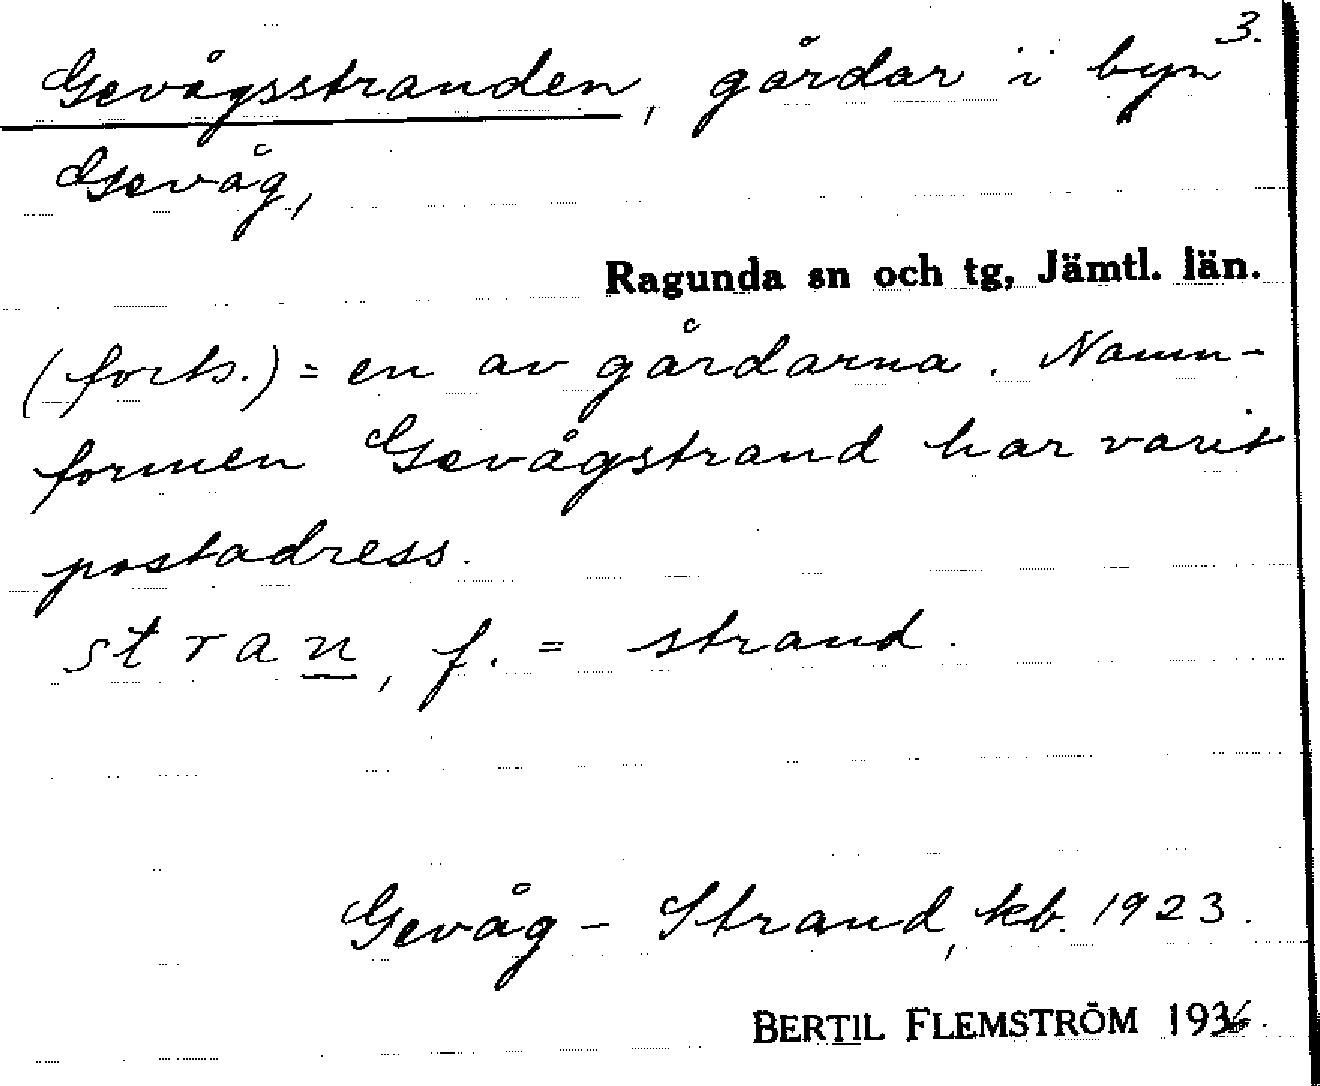 3.
Gevågsstranden, gårdar i byn
Gevåg,
Ragunda sn och tg, Jämtl. län.
(forts.) = en av gårdarna. Namn-
formen Gevågstrand har varit
postadress.
stran, f. = strand.
Gevåg - Strand, kb. 1923.
BERTIL FLEMSTRÖM 1936.